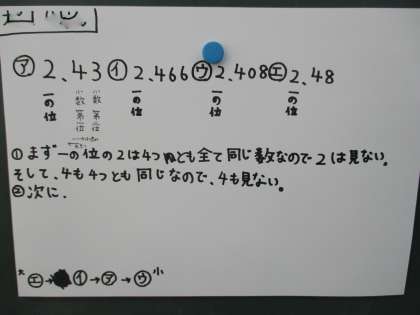 ㋐2.43 ㋑2.466 ㋒2.408 ㋓2.48
一の位 小数第一位 小数第二位 一の位 一の位 一の位
①まず一の位の2は4つとも全て同じ数なので2は見ない。
そして、4も4つとも同じなので、4も見ない。
②次に、
大 ㋓→㋑→㋐→㋒ 小